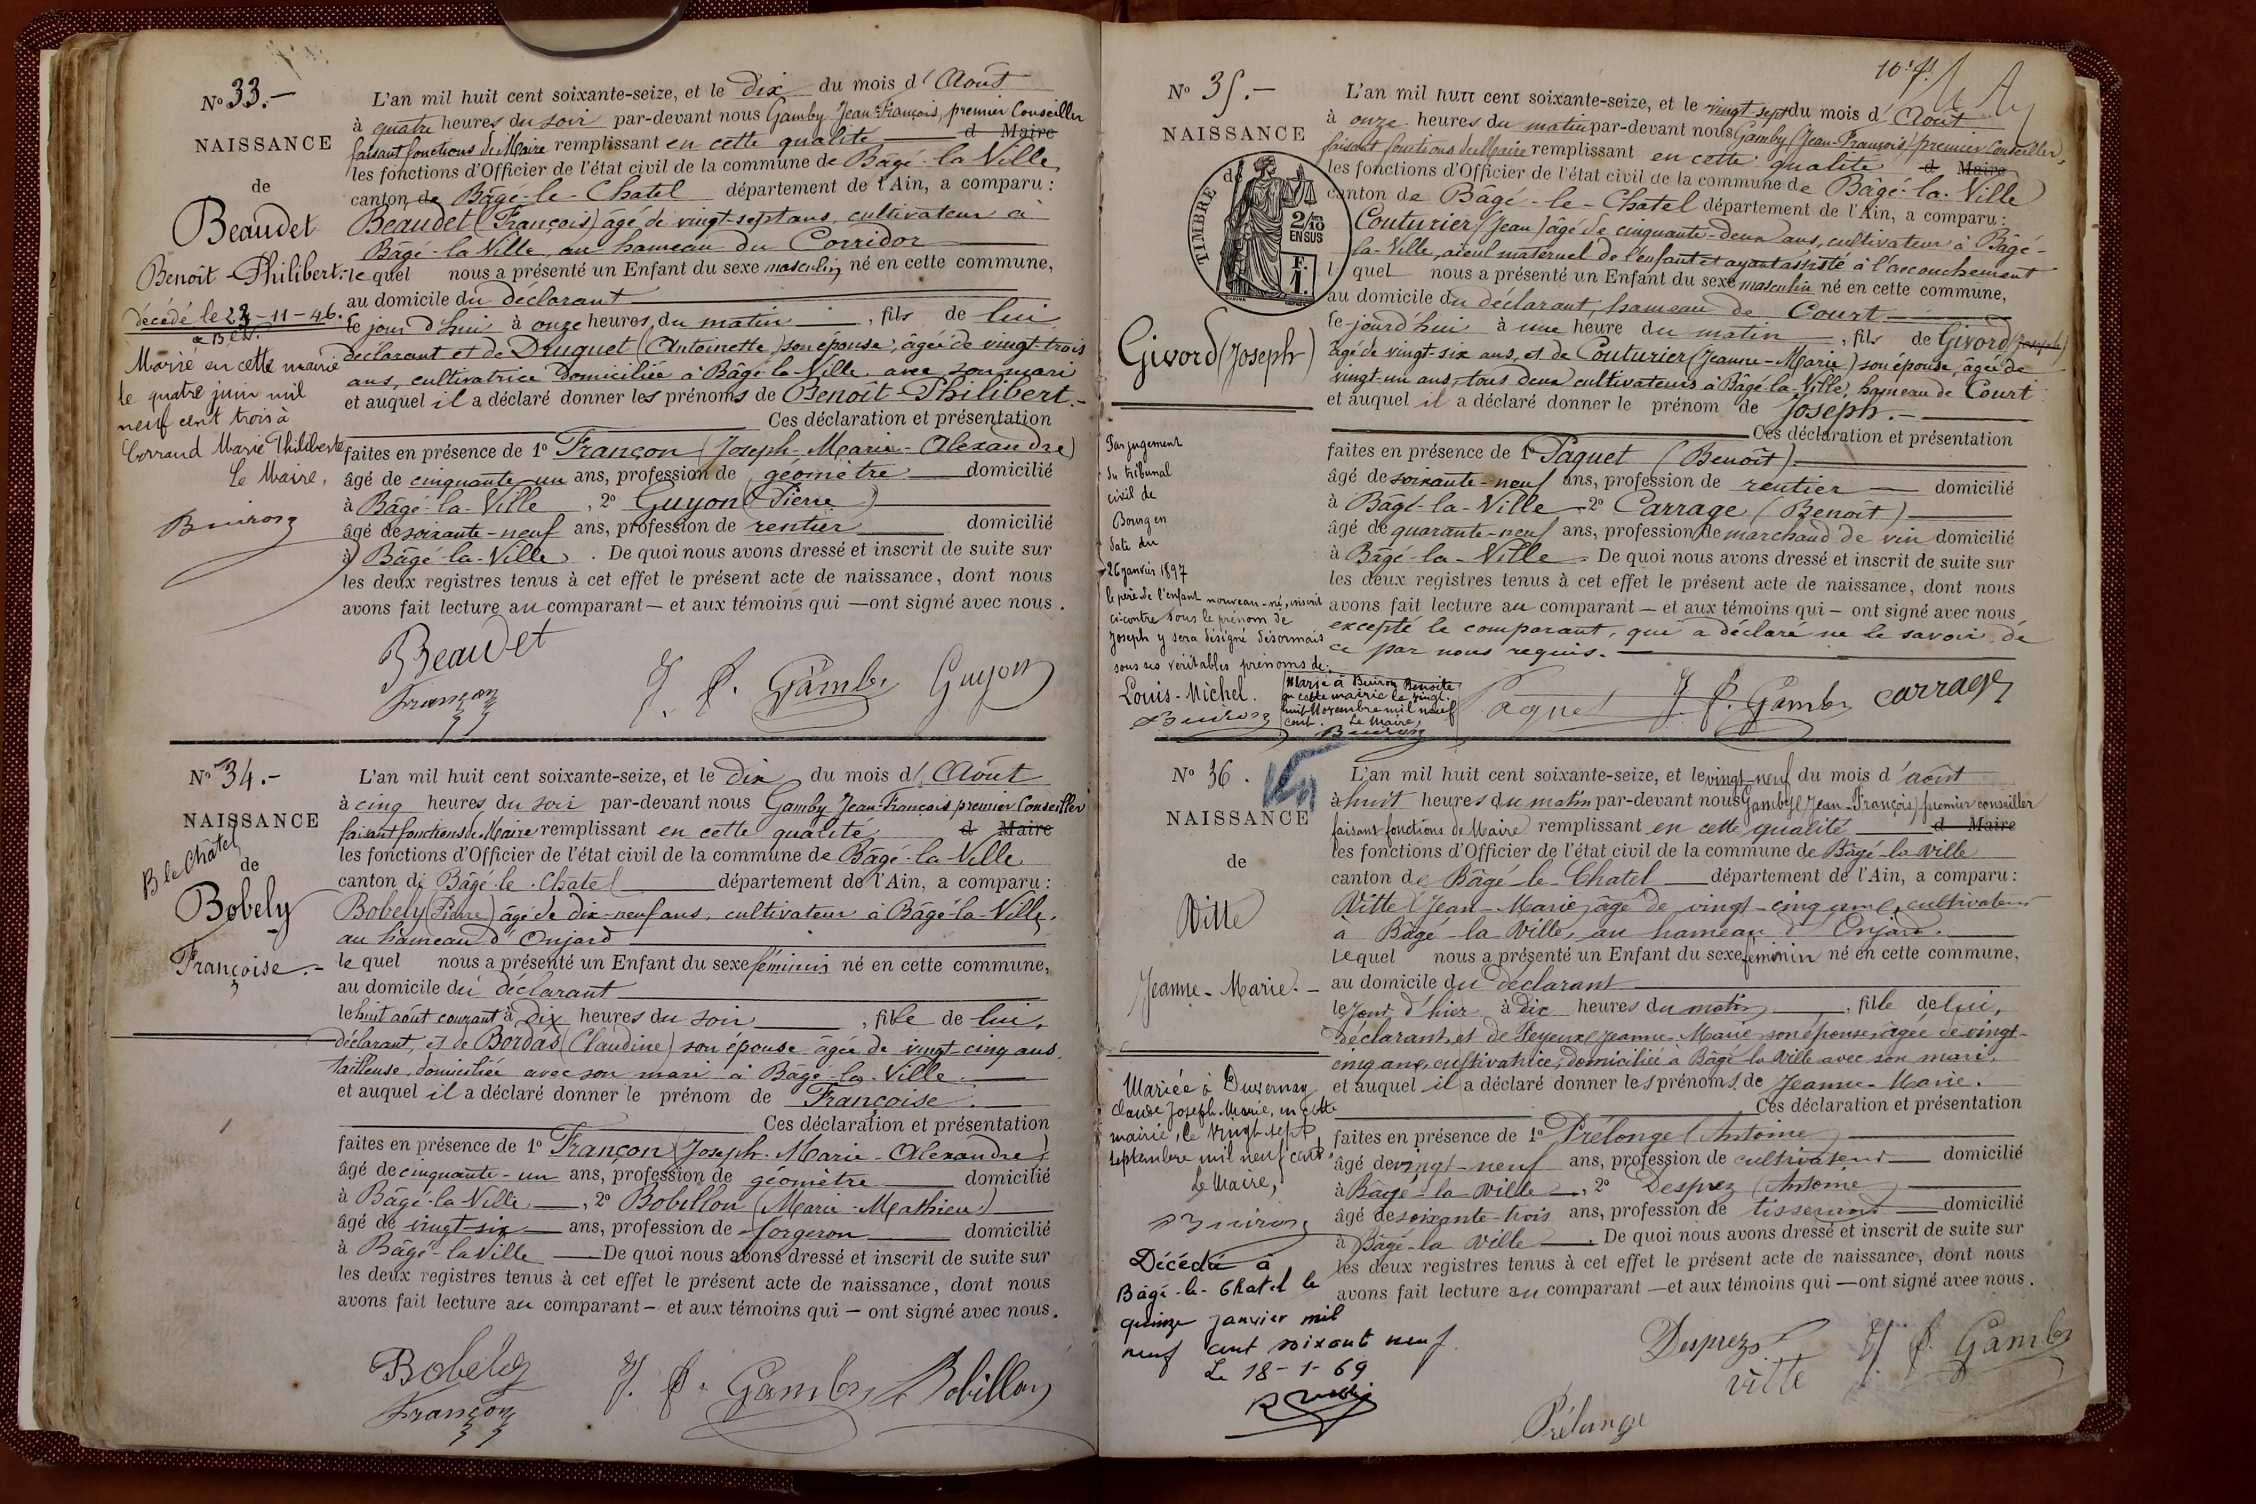 Nº 33.-
NAISSANCE
de
Beaudet
Benoît-Philibert.-
décédé le 23-11-46.
Marié en cette mairie
le quatre juin mil
neuf cent trois à
Corrand Marie Philiberte
Le Maire,
Buiron
L'an mil huit cent soixante-seize, et le dix du mois d'Août
à quatre heures du soir par-devant nous Gamby Jean-François, premier Conseiller
faisant fonctions de Maire remplissant en cette qualité d Maire
les fonctions d'Officier de l'état civil de la commune de Bâgé-la-Ville
canton de Bâgé-le-Chatel département de l'Ain, a comparu :
Beaudet (François) âgé de vingt-sept ans, cultivateur à
Bâgé-la-Ville au hameau du Corridor
lequel nous a présenté un Enfant du sexe masculin né en cette commune,
au domicile du déclarant
le jour d'hui à onze heures du matin, fils de lui
déclarant et de Druguet (Antoinette) son épouse, âgée de vingt-trois
ans, cultivatrice domiciliée à Bâgé-la-Ville avec son mari
et auquel il a déclaré donner les prénoms de Benoît-Philibert.-
Ces déclaration et présentation
faites en présence de 1º Françon (Joseph-Marie-Alexandre)
âgé de cinquante-un ans, profession de géomètre domicilié
à Bâgé-la-Ville, 2º Guyon (Pierre)
âgé de soixante-neuf ans, profession de rentier domicilié
à Bâgé-la-Ville. De quoi nous avons dressé et inscrit de suite sur
les deux registres tenus à cet effet le présent acte de naissance, dont nous
avons fait lecture au comparant — et aux témoins qui — ont signé avec nous.
Beaudet
Françon
J. F. Gamby
Guyon
Nº 34.-
NAISSANCE
B le Châtel
de
Bobely
Françoise.-
L'an mil huit cent soixante-seize, et le Dix du mois d'Août
à cinq heures du soir par-devant nous Gamby Jean-François premier Conseiller
faisant fonctions de Maire remplissant en cette qualité d Maire
les fonctions d'Officier de l'état civil de la commune de Bâgé-la-Ville
canton de Bâgé-le-Chatel département de l'Ain, a comparu :
Bobely (Pierre) âgé de dix-neuf ans, cultivateur à Bâgé-la-Ville,
au hameau d'Onjard
lequel nous a présenté un Enfant du sexe féminin né en cette commune,
au domicile du déclarant
le huit août courant à dix heures du soir, fille de lui,
déclarant, et de Bordas (Claudine) son épouse âgée de vingt-cinq ans,
tailleuse, domiciliée avec son mari à Bâgé-la-Ville.
et auquel il a déclaré donner le prénom de Françoise.
Ces déclaration et présentation
faites en présence de 1º Françon (Joseph-Marie-Alexandre)
âgé de cinquante-un ans, profession de géomètre domicilié
à Bâgé-la-Ville, 2º Bobillon (Marie-Mathieu)
âgé de vingt-six ans, profession de forgeron domicilié
à Bâgé-la-Ville De quoi nous avons dressé et inscrit de suite sur
les deux registres tenus à cet effet le présent acte de naissance, dont nous
avons fait lecture au comparant — et aux témoins qui — ont signé avec nous.
Bobely
Françon
J. F. Gamby
Bobillon
Nº 35.-
NAISSANCE
de
TIMBRE
2/10 EN SUS
F. 1.
Givord (Joseph)
Par jugement
du tribunal
civil de
Bourg en
date du
26 janvier 1897
le père de l'enfant nouveau-né, inscrit
ci-contre sous le prénom de
Joseph y sera désigné désormais
sous ses véritables prénoms de
Louis-Michel.
Buiron
Marié à Buiron Benoîte
en cette mairie le vingt-
huit Novembre mil neuf
cent. Le Maire,
Buiron
L'an mil huit cent soixante-seize, et le vingt sept du mois d'Août
à onze heures du matin par-devant nous Gamby (Jean-François) premier Conseiller,
faisant fonctions de Maire remplissant en cette qualité d Maire
les fonctions d'Officier de l'état civil de la commune de Bâgé-la-Ville
canton de Bâgé-le-Chatel département de l'Ain, a comparu :
Couturier (Jean) âgé de cinquante-deux ans, cultivateur à Bâgé-
la-Ville, aïeul maternel de l'enfant et ayant assisté à l'accouchement
lquel nous a présenté un Enfant du sexe masculin né en cette commune,
au domicile du déclarant, hameau de Court
le jourd'hui à une heure du matin, fils de Givord (Joseph)
âgé de vingt-six ans, et de Couturier (Jeanne-Marie) son épouse, âgée de
vingt-un ans, tous deux cultivateurs à Bâgé-la-Ville, hameau de Court
et auquel il a déclaré donner le prénom de Joseph.-
Ces déclaration et présentation
faites en présence de 1º Paquet (Benoît)
âgé de soixante-neuf ans, profession de rentier domicilié
à Bâgé-la-Ville 2º Carrage (Benoît)
âgé de quarante-neuf ans, profession de marchand de vin domicilié
à Bâgé-la-Ville. De quoi nous avons dressé et inscrit de suite sur
les deux registres tenus à cet effet le présent acte de naissance, dont nous
avons fait lecture au comparant — et aux témoins qui — ont signé avec nous
excepté le comparant, qui a déclaré ne le savoir de
ce par nous requis.
Paquet
J. F. Gamby
Carrage
Nº 36.
NAISSANCE
de
Vitte
Jeanne-Marie.-
Mariée à Duvernay
Claude Joseph Marie, en cette
mairie, le vingt sept
septembre mil neuf cent.
Le Maire,
Buiron
Décédée à
Bâgé-le-Chatel le
quinze janvier mil
neuf cent soixante neuf.
Le 18-1-69
L'an mil huit cent soixante-seize, et le vingt-neuf du mois d'août
à huit heures du matin par-devant nous Gamby (Jean-François) premier conseiller
faisant fonctions de Maire remplissant en cette qualité d Maire
les fonctions d'Officier de l'état civil de la commune de Bâgé-la-Ville
canton de Bâgé-le-Chatel département de l'Ain, a comparu :
Vitte (Jean-Marie) âgé de vingt-cinq ans, cultivateur
à Bâgé-la-Ville, au hameau d'Onjard.
lequel nous a présenté un Enfant du sexe féminin né en cette commune,
au domicile du déclarant
le jour d'hier à dix heures du matin, fille de lui,
déclarant, et de Feyeux Jeanne-Marie son épouse, âgée de vingt-
cinq ans, cultivatrice, domiciliée à Bâgé-la-Ville avec son mari.
et auquel il a déclaré donner les prénoms de Jeanne-Marie.
Ces déclaration et présentation
faites en présence de 1º Prélonge (Antoine)
âgé de vingt-neuf ans, profession de cultivateur domicilié
à Bâgé-la-Ville, 2º Desprez (Antoine)
âgé de soixante-trois ans, profession de tisserand domicilié
à Bâgé-la-Ville. De quoi nous avons dressé et inscrit de suite sur
les deux registres tenus à cet effet le présent acte de naissance, dont nous
avons fait lecture au comparant — et aux témoins qui — ont signé avec nous.
Desprez
J. F. Gamby
Vitte
Prélonge